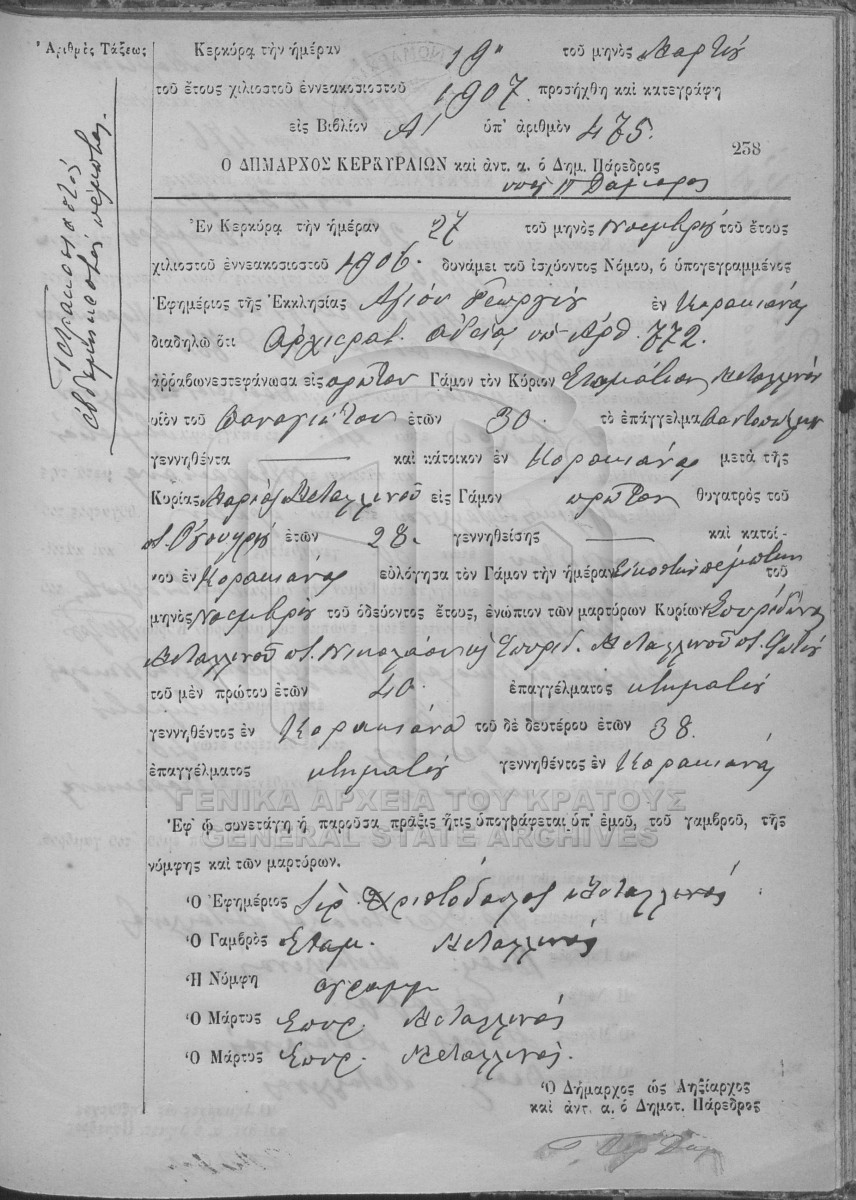 Ὁ Ἀριθμὸς Τάξεως
Τετρακοσιαστός
ἑβδομηκοστός πέμπτος.
Κερκύρα τὴν ἡμέραν 19ῃ τοῦ μηνὸς Μαρτίου
τοῦ ἔτους χιλιοστοῦ ἐννεακοσιοστοῦ 1907. προσήχθη καὶ κατεγράφη
εἰς Βιβλίον Α' ὑπ' ἀριθμὸν 475.
238
Ο ΔΗΜΑΡΧΟΣ ΚΕΡΚΥΡΑΙΩΝ καὶ ἀντ. α. ὁ Δημ. Πάρεδρος
Ἐν Κερκύρᾳ τὴν ἡμέραν 27 τοῦ μηνὸς Νοεμβρίου τοῦ ἔτους
χιλιοστοῦ ἐννεακοσιοστοῦ 1906. δυνάμει τοῦ ἰσχύοντος Νόμου, ὁ ὑπογεγραμμένος
Ἐφημέριος τῆς Ἐκκλησίας Ἁγίου Γεωργίου ἐν Κορακιάνᾳ
διαδηλῶ ὅτι Ἀρχιερατ. ἀδείᾳ ὑπ' Ἀρθ. 772.
ἀρραβωνεστεφάνωσα εἰς πρῶτον Γάμον τὸν Κύριον Σταμάτιον Μεταλληνόν
υἱὸν τοῦ Παναγιώτου ἐτῶν 30. τὸ ἐπάγγελμα Παντοπώλην
γεννηθέντα —— καὶ κάτοικον ἐν Κορακιάνᾳ μετὰ τῆς
Κυρίας Μαρίας Μεταλληνοῦ εἰς Γάμον πρῶτον θυγατρὸς τοῦ
ἐτῶν 28. γεννηθείσης —— καὶ κατοί-
κου ἐν Κορακιάνᾳ εὐλόγησα τὸν Γάμον τὴν ἡμέραν Εἰκοστὴν πέμπτην τοῦ
μηνὸς Νοεμβρίου τοῦ ὁδεύοντος ἔτους, ἐνώπιον τῶν μαρτύρων Κυρίων Σπυρίδωνος
Μεταλληνοῦ π. Νικολάου καὶ Σπυρίδ. Μεταλληνοῦ π. Φωτίου
τοῦ μὲν πρώτου ἐτῶν 40. ἐπαγγέλματος κτηματίου
γεννηθέντος ἐν Κορακιάνᾳ τοῦ δὲ δευτέρου ἐτῶν 38.
ἐπαγγέλματος κτηματίου γεννηθέντος ἐν Κορακιάνᾳ
ΓΕΝΙΚΑ ΑΡΧΕΙΑ ΤΟΥ ΚΡΑΤΟΥΣ
Ἐφ' ᾧ συνετάγη ἡ παροῦσα πρᾶξις ἥτις ὑπογράφεται ὑπ' ἐμοῦ, τοῦ γαμβροῦ, τῆς
GENERAL STATE ARCHIVES
νύμφης καὶ τῶν μαρτύρων.
Ὁ Ἐφημέριος Ἱερ. Χριστόδουλος Μεταλληνός
Ὁ Γαμβρὸς Σταμ. Μεταλληνός
Ἡ Νύμφη ἀγράμμ
Ὁ Μάρτυς Σπυρ. Μεταλληνός
Ὁ Μάρτυς Σπυρ. Μεταλληνός.
Ὁ Δήμαρχος ὡς Ληξίαρχος
καὶ ἀντ. α. ὁ Δημοτ. Πάρεδρος